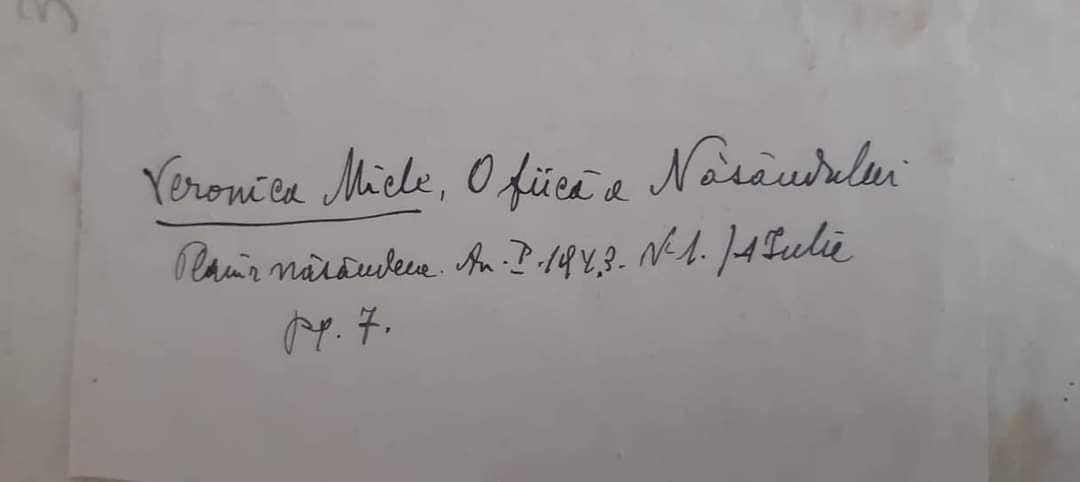 Veronica Micle, O fiică a Năsăudului
Plaiuri năsăudene. An. I. 1943. Nr 1. /1 Iulie
pp. 7.